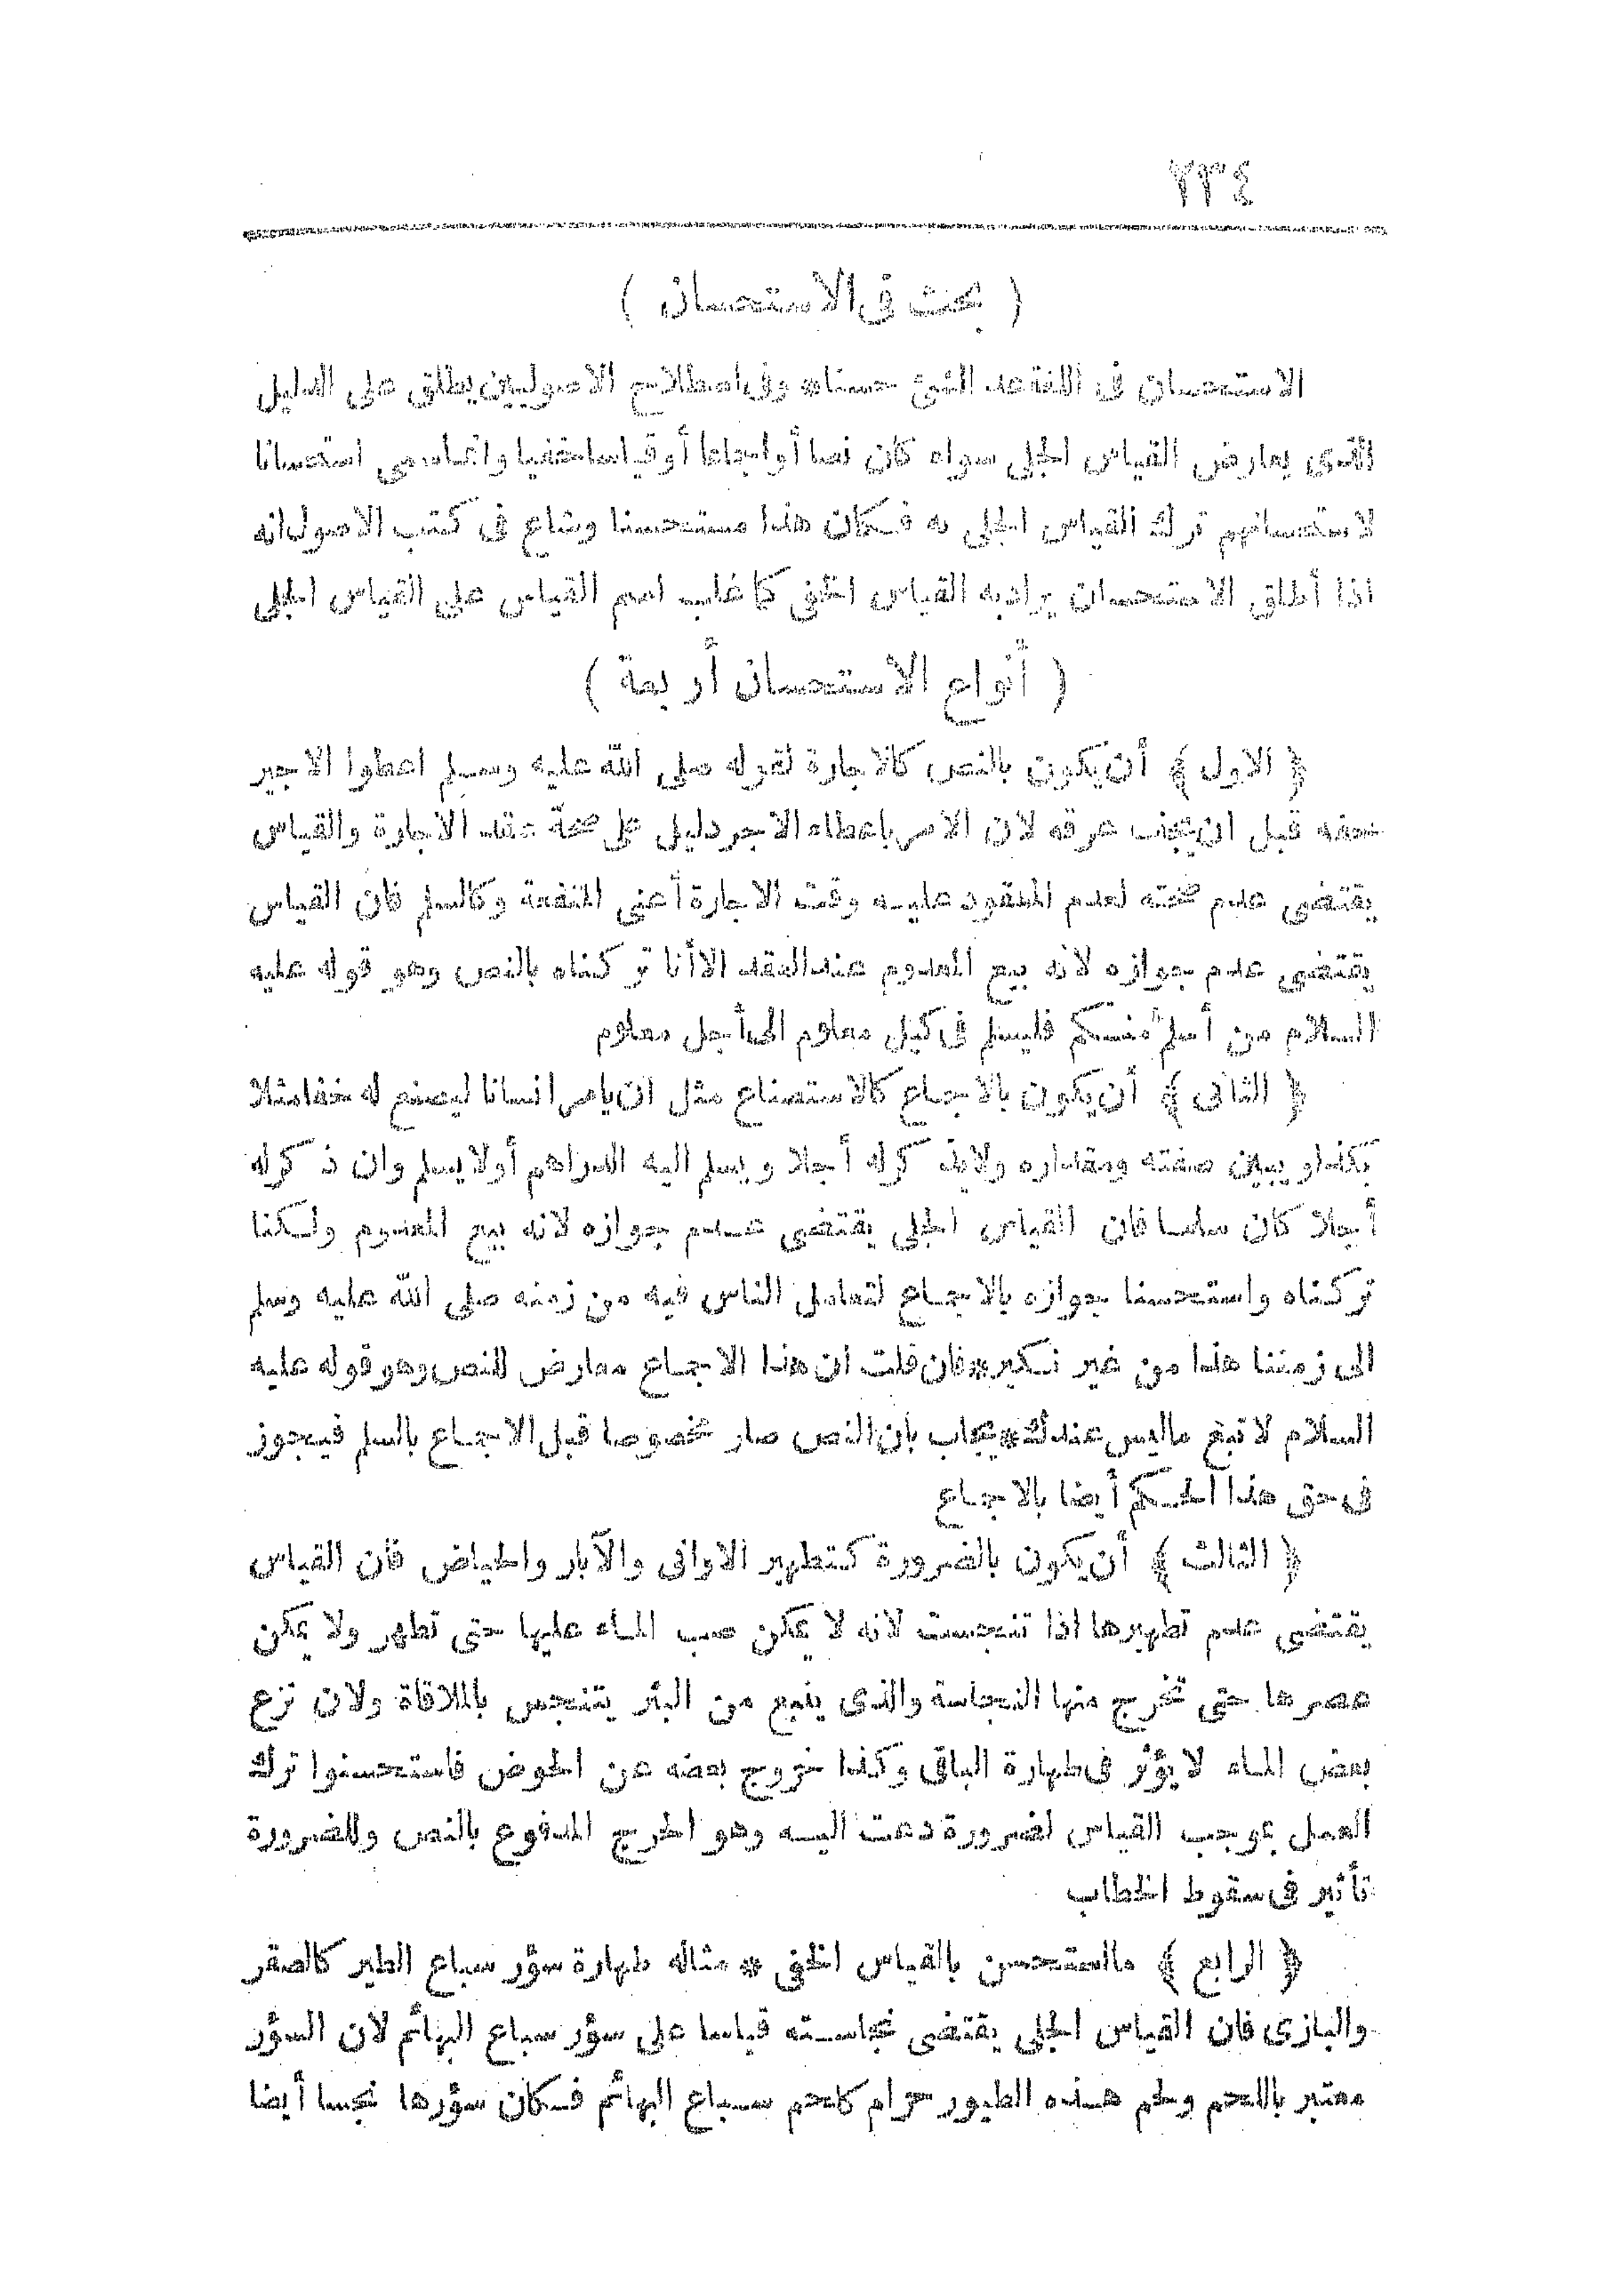 ٢٣٤
( بحث فى الاستحسان )
الاستحسان فى اللغة عد الشئ حسنا * وفى اصطلاح الاصوليين يطلق على الدليل
الذى يعارض القياس الجلى سواء كان نصا أو اجماعا أو قياسا خفيا وانما سمى استحسانا
لاستحسانهم ترك القياس الجلى به فكان هذا مستحسنا وشاع فى كتب الاصول انه
اذا أطلق الاستحسان يراد به القياس الخفى كما غلب اسم القياس على القياس الجلى
( أنواع الاستحسان أربعة )
﴿ الاول ﴾ أن يكون بالنص كالاجارة لقوله صلى الله عليه وسلم اعطوا الاجير
حقه قبل ان يجف عرقه لان الامر باعطاء الاجر دليل على صحة عقد الاجارة والقياس
يقتضى عدم صحته لعدم المعقود عليه وقت الاجارة أعنى المنفعة وكالسلم فان القياس
يقتضى عدم جوازه لانه بيع المعدوم عند العقد الا أنا تركناه بالنص وهو قوله عليه
السلام من أسلم منكم فليسلم فى كيل معلوم الى أجل معلوم
﴿ الثانى ﴾ أن يكون بالاجماع كالاستصناع مثل ان يامر انسانا ليصنع له خفا مثلا
بكذا ويبين صفته ومقداره ولا يذكر له أجلا ويسلم اليه الدراهم أولا يسلم وان ذكر له
أجلا كان سلما فان القياس الجلى يقتضى عدم جوازه لانه بيع المعدوم ولكنا
تركناه واستحسنا جوازه بالاجماع لتعامل الناس فيه من زمنه صلى الله عليه وسلم
الى زمننا هذا من غير نكير * فان قلت ان هذا الاجماع معارض للنص وهو قوله عليه
السلام لا تبع ماليس عندك * يجاب بان النص صار مخصوصا قبل الاجماع بالسلم فيجوز
فى حق هذا الحكم أيضا بالاجماع
﴿ الثالث ﴾ أن يكون بالضرورة كتطهير الاوانى والآبار والحياض فان القياس
يقتضى عدم تطهيرها اذا تنجست لانه لا يمكن صب الماء عليها حتى تطهر ولا يمكن
عصرها حتى تخرج منها النجاسة والذى ينبع من البئر يتنجس بالملاقاة ولان نزع
بعض الماء لا يؤثر فى طهارة الباقى وكذا خروج بعضه عن الحوض فاستحسنوا ترك
العمل بموجب القياس لضرورة دعت اليه وهو الحرج المدفوع بالنص وللضرورة
تأثير فى سقوط الخطاب
﴿ الرابع ﴾ ما استحسن بالقياس الخفى * مثاله طهارة سؤر سباع الطير كالصقر
والبازى فان القياس الجلى يقتضى نجاسته قياسا على سؤر سباع البهائم لان السؤر
معتبر باللحم ولحم هذه الطيور حرام كلحم سباع البهائم فكان سؤرها نجسا أيضا